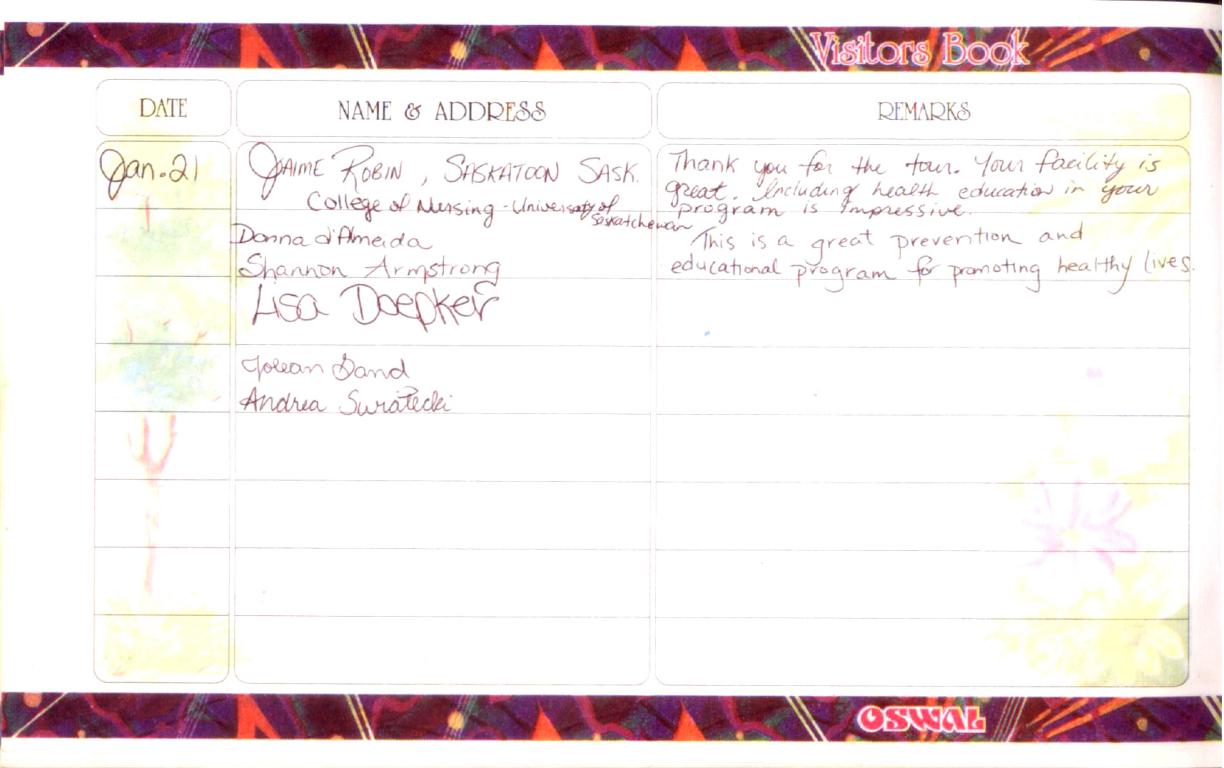 Visitors Book
DATE
NAME & ADDRESS
REMARKS
Jan. 21
JAIME ROBIN, SASKATOON SASK.
College of Nursing - University of
Saskatchewan
Donna d'Almeida
Shannon Armstrong
Lisa Doepker
Dand
Andrea Suratecki
Thank you for the tour. Your facility is
great. Including health education in your
program is impressive.
This is a great prevention and
educational program for promoting healthy lives.
OSWAL